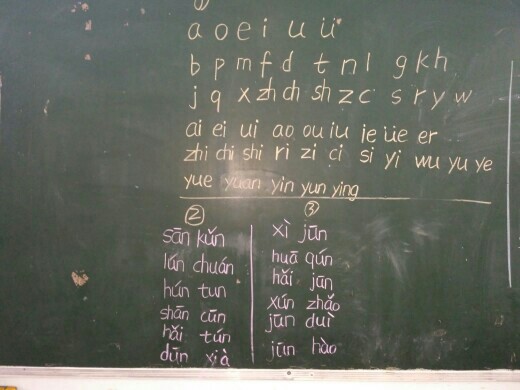 ①
a o e i u ü
b p m f d t n l g k h
j q x zh ch sh z c s r y w
ai ei ui ao ou iu ie üe er
zhi chi shi ri zi ci si yi wu yu ye
yue yuan yin yun ying
②
sān kǔn
lán chuán
hún tun
shān cūn
hǎi tún
dūn xià
③
xì jūn
huā qún
hǎi jūn
xún zhǎo
jūn duì
jūn hào